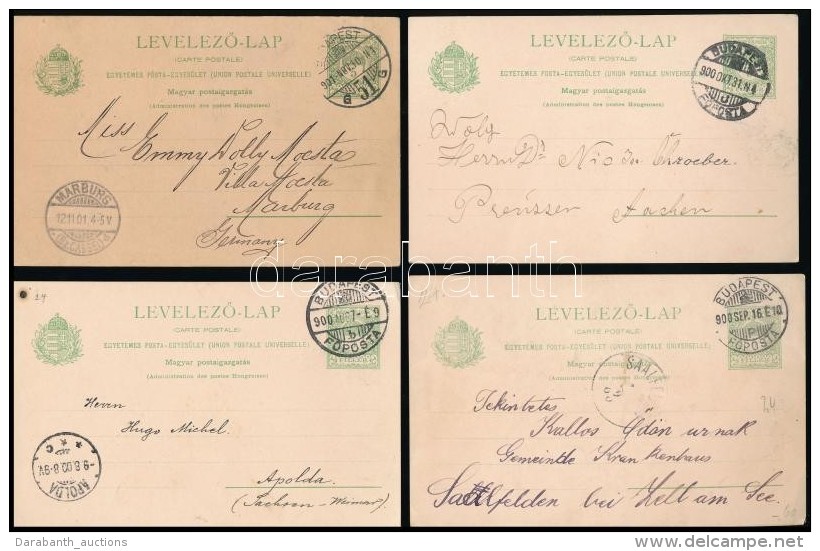 LEVELEZŐ-LAP
(CARTE POSTALE)
EGYETEMES POSTA-EGYESÜLET (UNION POSTALE UNIVERSELLE)
Magyar postaigazgatás
(Administration des postes Hongroises)
51
G G
Miss Emmy Dolly Moesta
Villa Moesta
Marburg
Germany
MARBURG
12.11.01. 4-5 V
LEVELEZŐ-LAP
(CARTE POSTALE)
EGYETEMES POSTA-EGYESÜLET (UNION POSTALE UNIVERSELLE)
Magyar postaigazgatás
(Administration des postes Hongroises)
BUDAPEST
900 OKT. 31. N 4
FŐPOSTA
Preussen Aachen
24
LEVELEZŐ-LAP
(CARTE POSTALE)
EGYETEMES POSTA-EGYESÜLET (UNION POSTALE UNIVERSELLE)
Magyar postaigazgatás
(Administration des postes Hongroises)
BUDAPEST
FŐPOSTA
Herrn
Hugo Michel.
Apolda.
(Sachsen-Weimar)
APOLDA
-9.8.00.8-9V
C
LEVELEZŐ-LAP
(CARTE POSTALE)
EGYETEMES POSTA-EGYESÜLET (UNION POSTALE UNIVERSELLE)
Magyar postaigazgatás
(Administration des postes Hongroises)
BUDAPEST
900 SEP. 16. É 10
FŐPOSTA
24
Tekintetes
Kallos Ödön urnak
Gemeinde Krankenhaus
Saalfelden bei Zell am See.
darabanth
Darabanth_auctions
delcampe.net